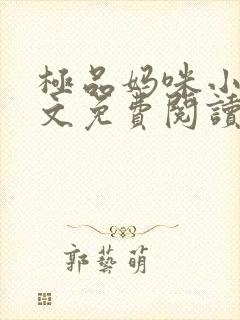 極品妈咪小
文免費閱讀
郭藝萌